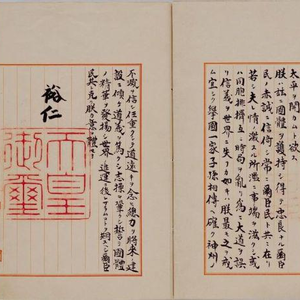 太平ヲ開カムト欲ス
朕ハ茲ニ國體ヲ護持シ得テ忠良ナル爾臣
民ノ赤誠ニ信倚シ常ニ爾臣民ト共ニ在リ
若シ夫レ情ノ激スル所濫ニ事端ヲ滋クシ或
ハ同胞排擠互ニ時局ヲ亂リ爲ニ大道ヲ誤
リ信義ヲ世界ニ失フカ如キハ朕最モ之ヲ戒
ム宜シク擧國一家子孫相傳ヘ確ク神州ノ
不滅ヲ信シ任重クシテ道遠キヲ念ヒ總力ヲ將來ノ建
設ニ傾ケ道義ヲ篤クシ志操ヲ鞏クシ誓テ國體
ノ精華ヲ發揚シ世界ノ進運ニ後レサラムコトヲ期スヘシ爾臣
民其レ克ク朕カ意ヲ體セヨ
裕仁
天皇
御璽